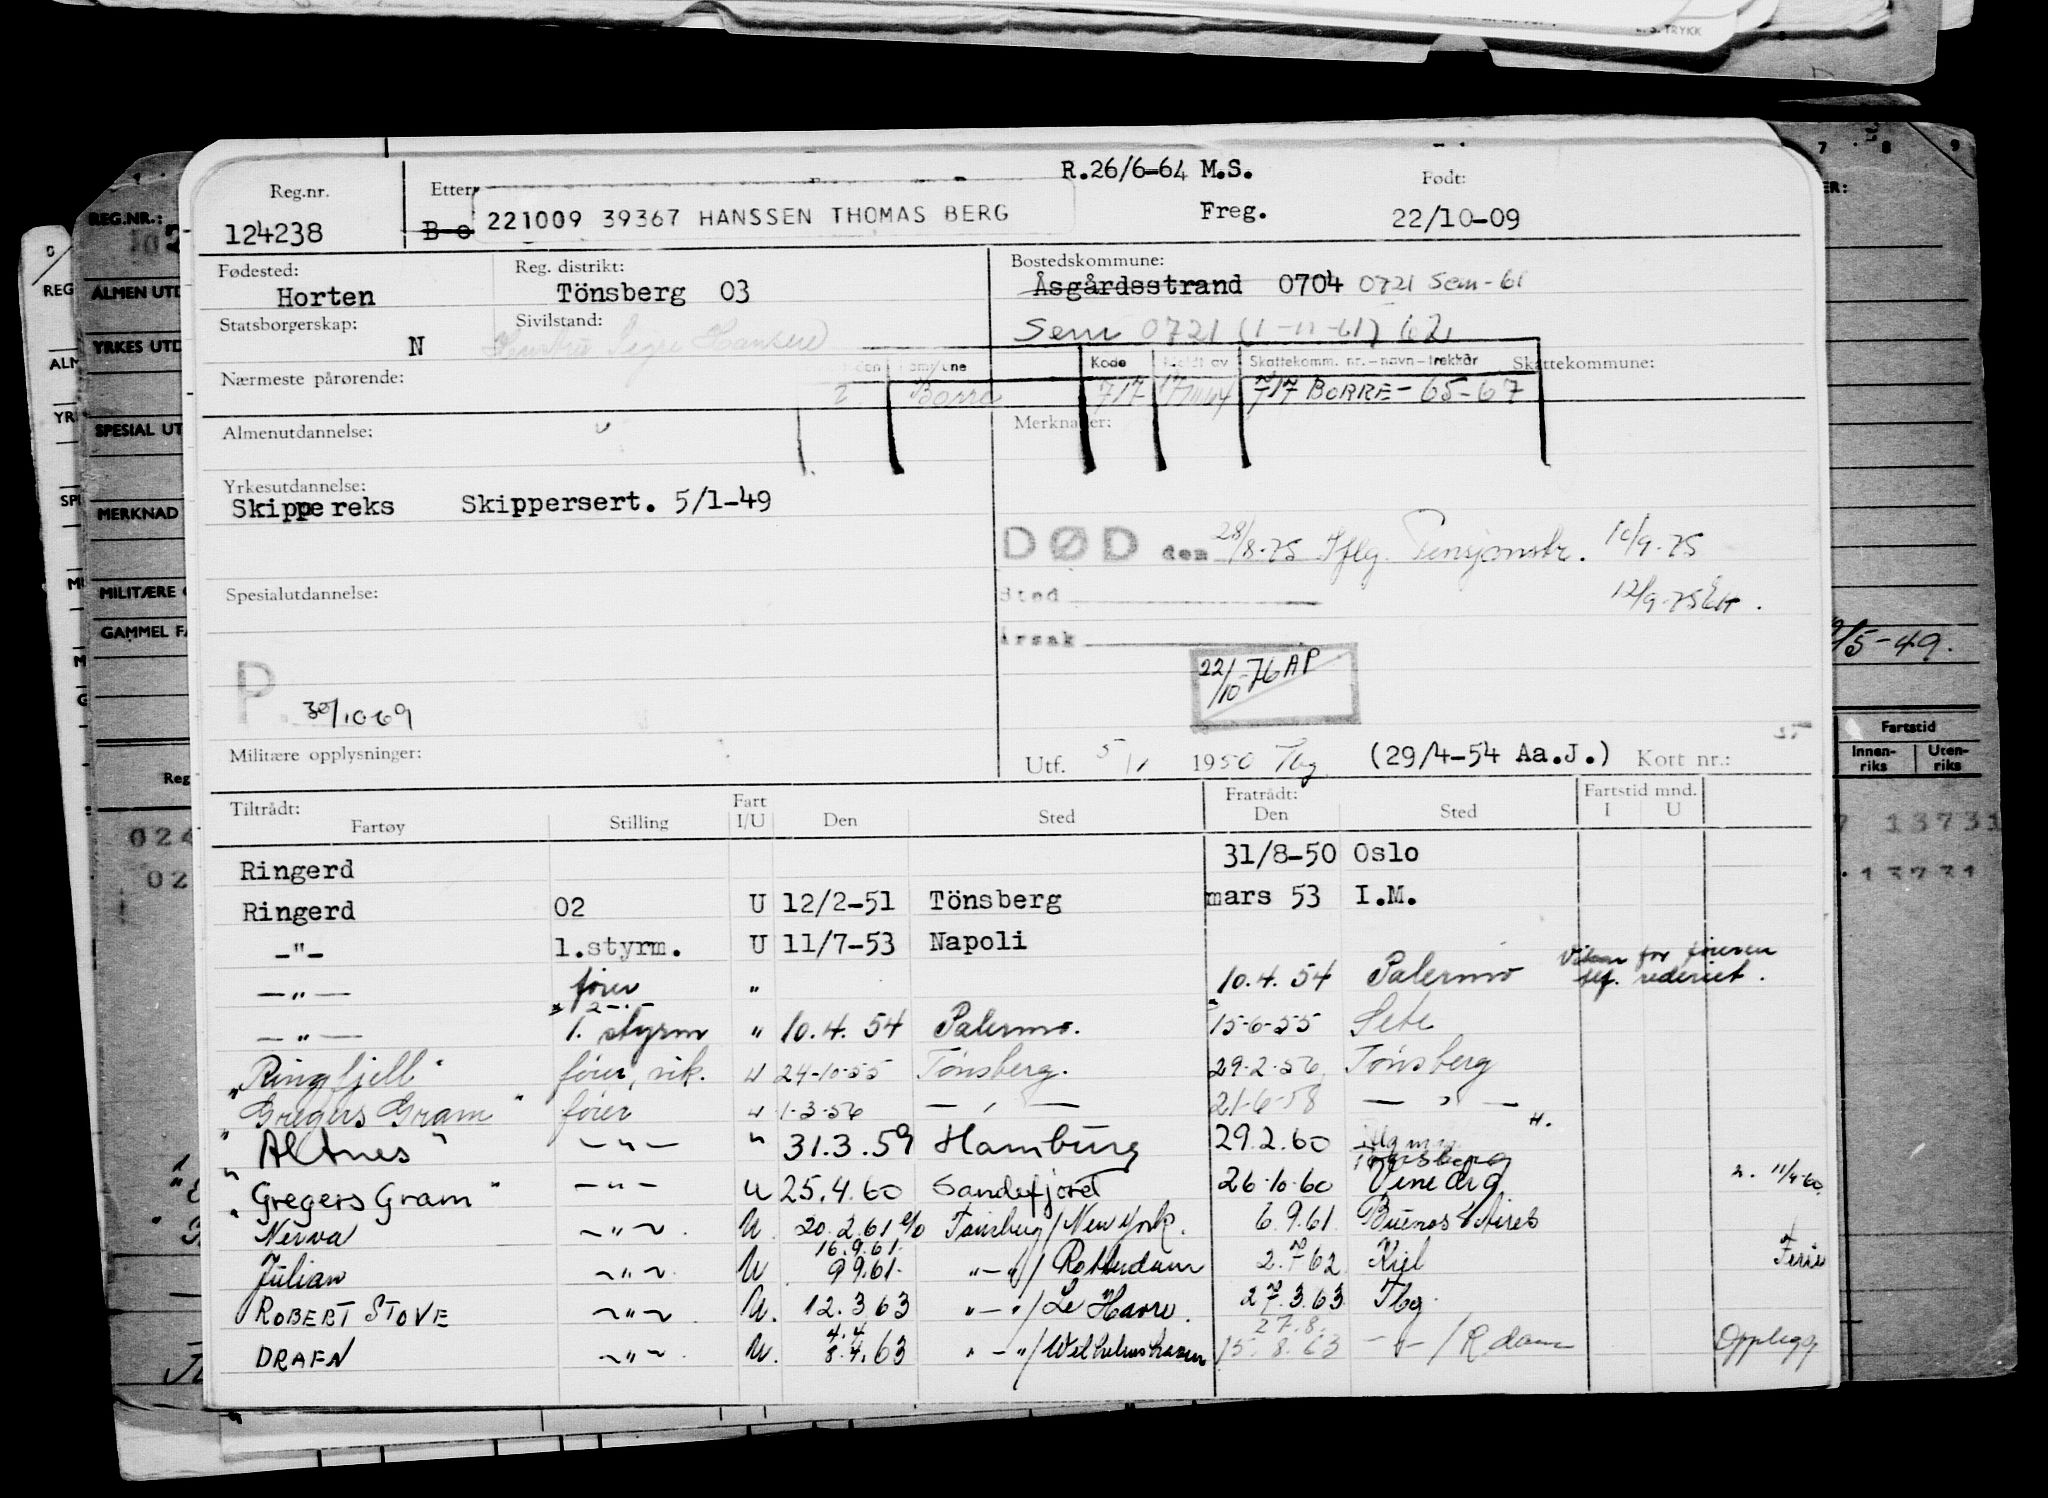 R.26/6-64 M.S.
Reg.nr. Etter Født:
124238 221009 39367 HANSSEN THOMAS BERG Freg. 22/10-09
Fødested: Reg. distrikt: Bostedskommune:
Horten Tönsberg 03 Åsgårdsstrand 0704 0721 Sem - 61
Statsborgerskap: Sivilstand: Sem 0721 (1-11-61) 62
N
Kode Skattekomm. nr. – navn – trekkår Skattekommune:
Nærmeste pårørende: Borre 717 717 BORRE - 65-67
Almenutdannelse: Merknader:
Yrkesutdannelse:
Skippereks Skippersert. 5/1-49
DØD den 28/8-75 Iflg. Pensjonstr. 12/9-75
Spesialutdannelse: Sted 12/9-75
Årsak
22/10-76 AP
P. 30/10 69
Militære opplysninger: Utf. 5/1 1950 Tbg (29/4-54 Aa.J.) Kort nr.:
Tiltrådt: Fart Fratrådt: Fartstid mnd.
Fartøy Stilling I/U Den Sted Den Sted I U
Ringerd 31/8-50 Oslo
Ringerd 02 U 12/2-51 Tönsberg mars 53 I.M.
-"- 1.styrm. U 11/7-53 Napoli
-"- fører " 10.4.54 Palermo for føreren rederiet.
-"- 1. styrm " 10.4.54 Palermo. 15-6-55 Sete
"Ringfjell" fører, vik. U 24-10-55 Tönsberg. 29-2-56 Tönsberg
"Gregers Gram" fører U 1-3-56 -"- 21-6-58 -"-
"Altnes" -"- " 31.3.59 Hamburg 29.2.60 Tønsberg
"Gregers Gram" -"- U 25.4.60 Sandefjord 26-10-60 Venedig
Nerva -"- U. 20.2.61 Tønsberg/New York. 6.9.61 Buenos Aires
16.9.61.
Julian -"- U 9 9.61. "-"/ Rotterdam 2.7.62 Kiel Ferie
ROBERT STOVE -"- U. 12.3 63 "-"/Le Havre. 27.3.63 Tbg.
4.4 27.8.
DRAFN -"- U. 8.4.63 "-"/Wilhelmshaven 15.8.63 -"-/R dam Opplegg
REG.NR.:
ALMEN UTD
YRKES UTD
SPESIAL UT
MERKNAD
MILITÆRE
GAMMEL FA
/5-49.
Fartstid
Innen-riks Uten-riks
13731
13731
024
02